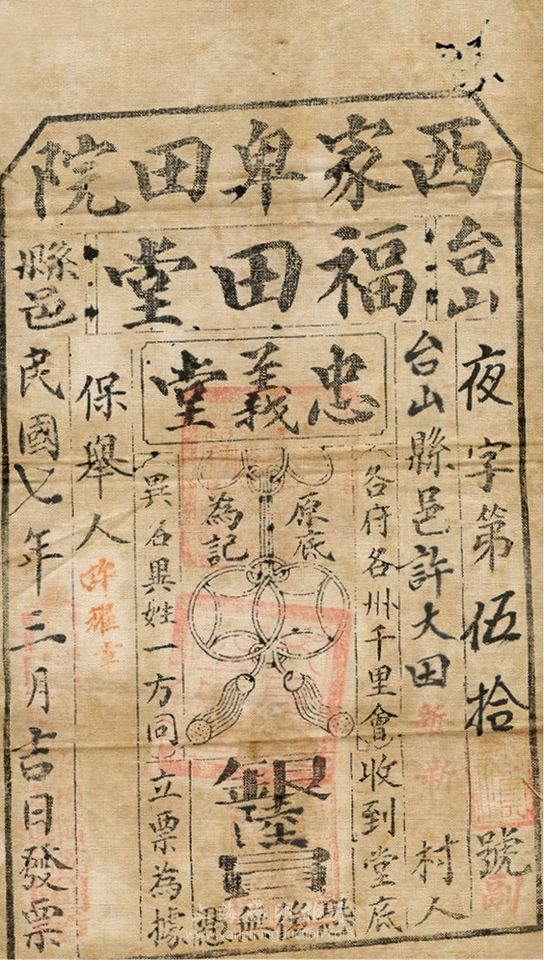 西家卑田院
台山
福田堂
縣邑
忠義堂
夜字第伍拾號
副
台山縣邑許大田
新
村人
各府各州千里會收到堂底
原底
為記
銀
員
恐後無憑
異名異姓一方同立票為據
保舉人
許耀
民國七年三月吉日發票